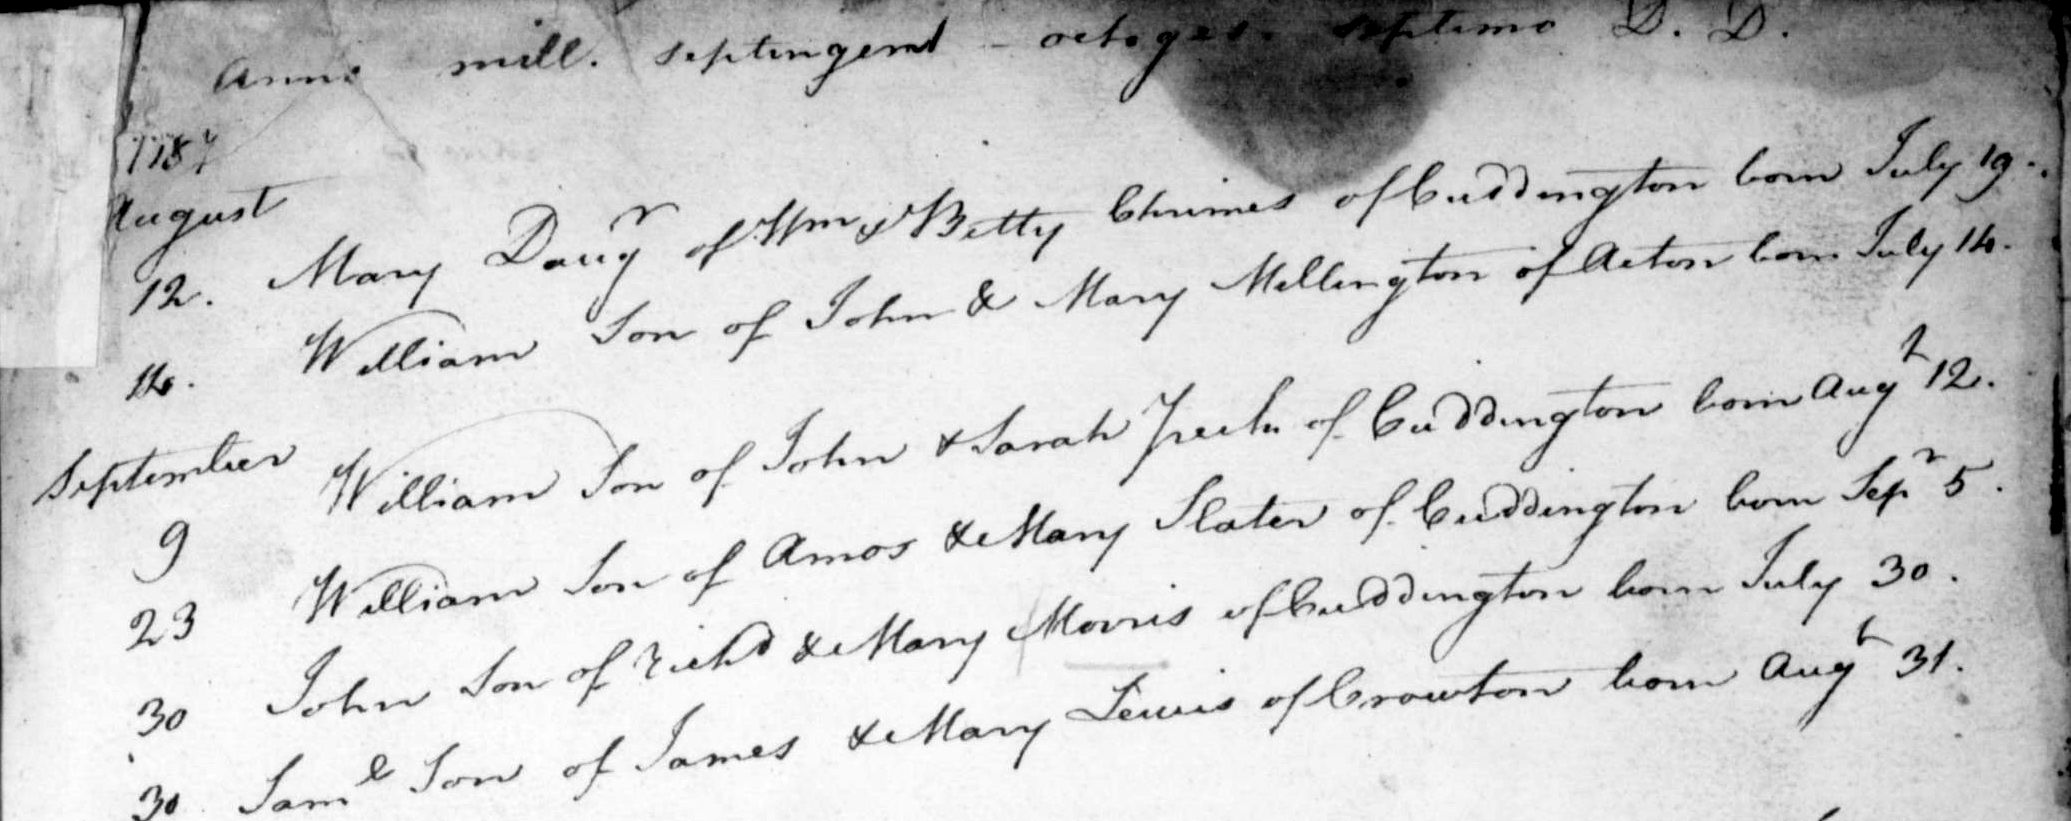 Anno mill. septingent - octoges. septimo D. D.
1787
August
12. Mary Daugr of Wm & Betty Chrimes of Cuddington born July 19.
14. William Son of John & Mary Millington of Acton born July 14.
September
9 William Son of John & Sarah of Cuddington born Augt 12.
23 William Son of Amos & Mary Slater of Cuddington born Sepr 5.
30 John Son of Richd & Mary Morris of Cuddington born July 30.
30 Saml Son of James & Mary Lewis of Crowton born Augt 31.